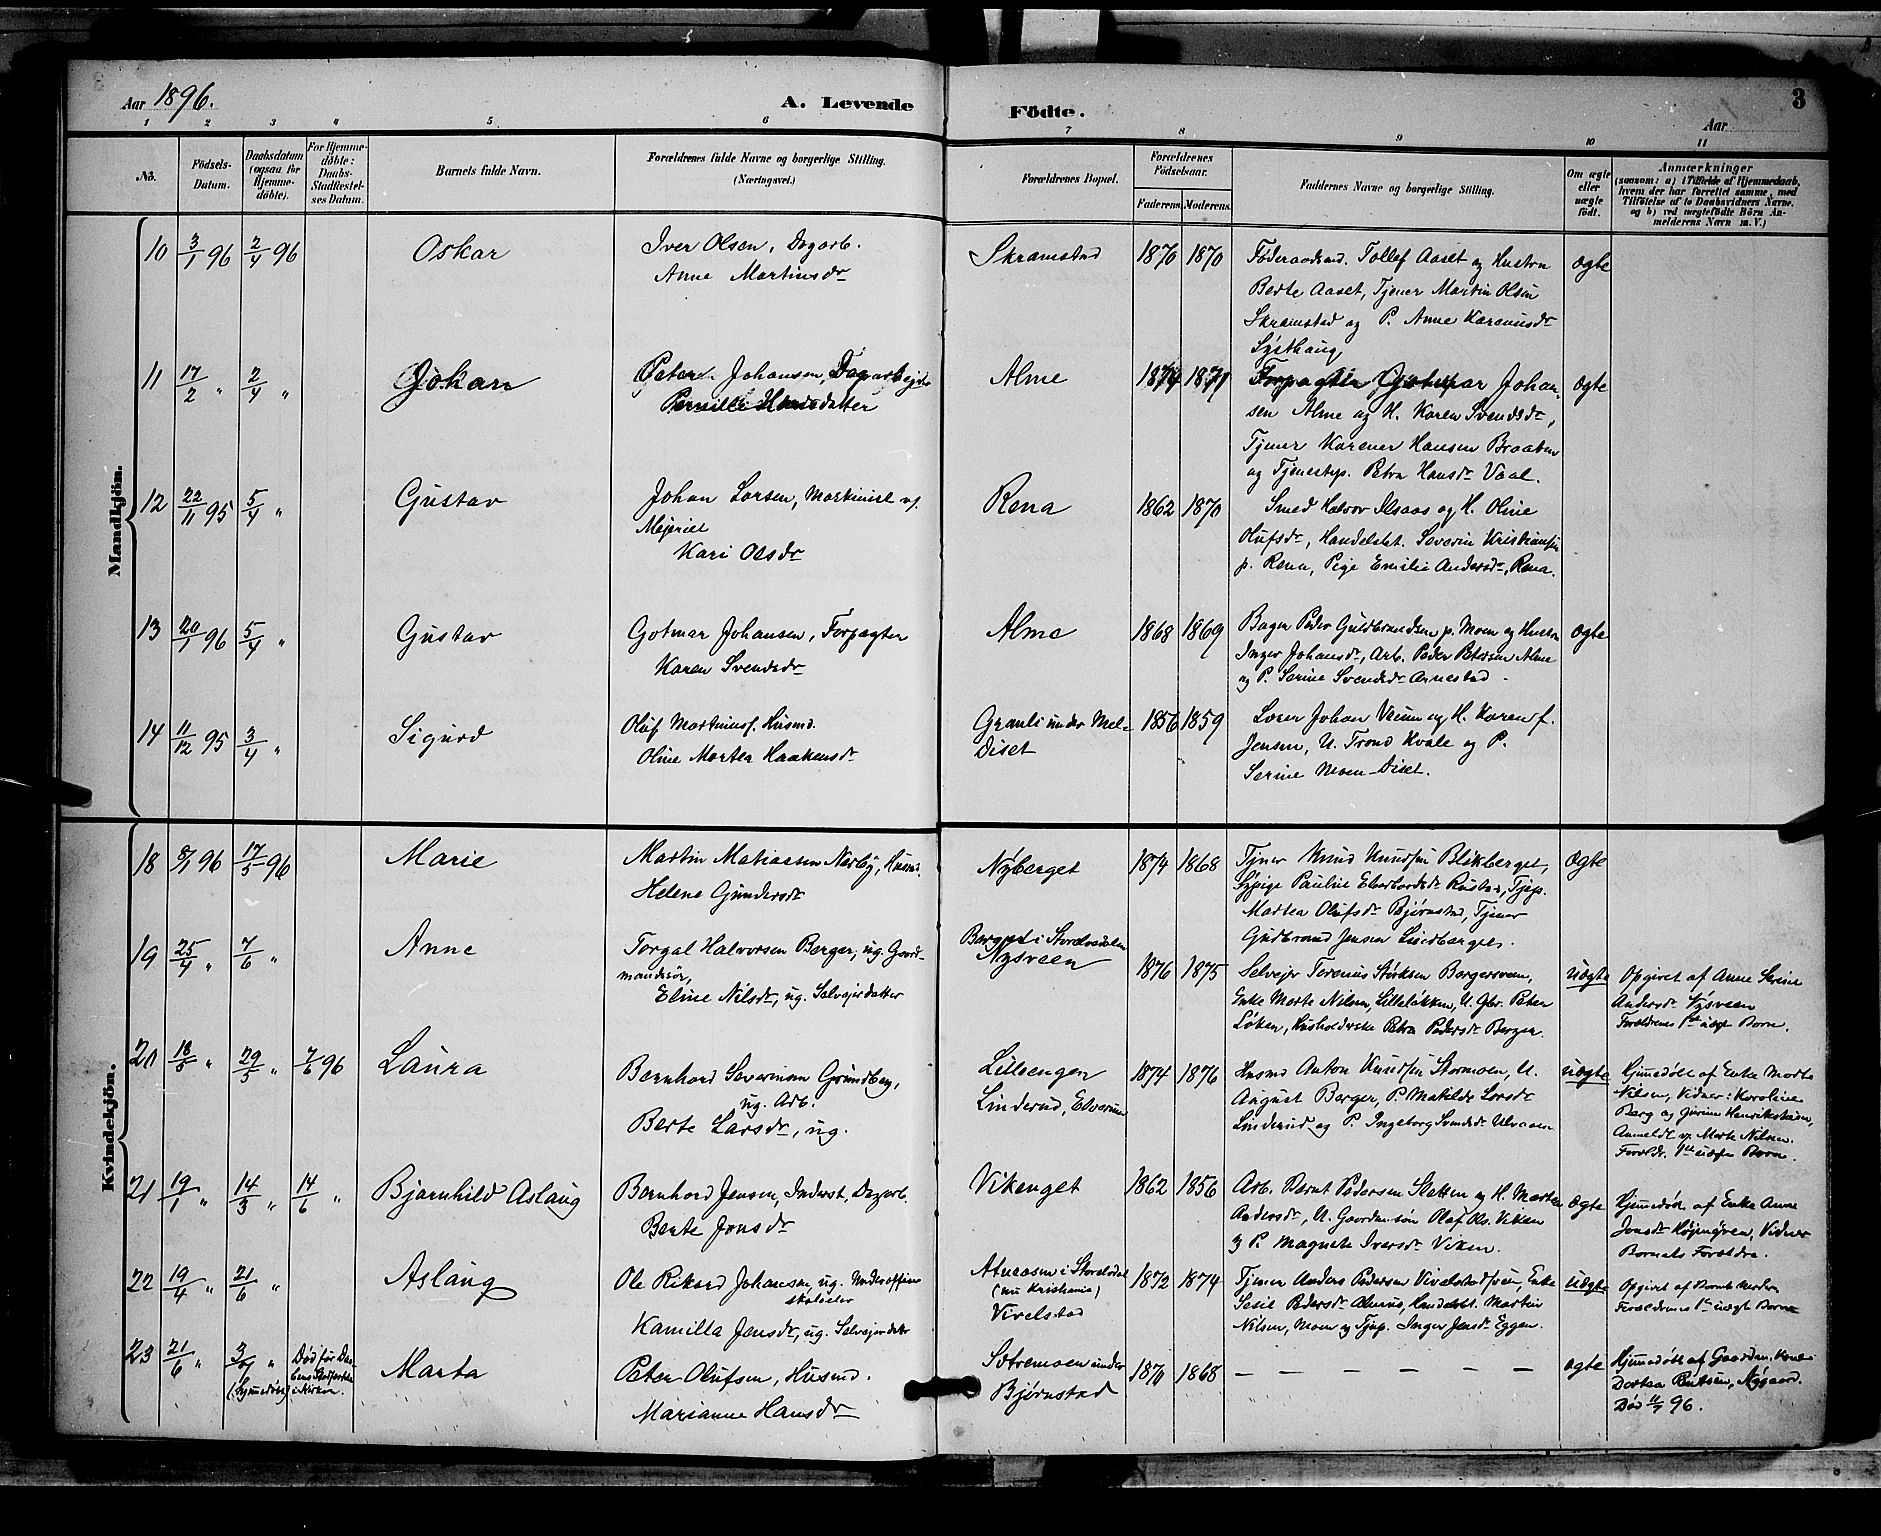 Aar 1896.
A. Levende
Födte.
3
Aar
1 2 3 4 5 6 7 8 9 10 11
No.
Födsels-
Datum.
Daabsdatum
(ogsaa for
Hjemme-
døbte).
For Hjemme-
døbte:
Daabs-
Stadfæstel-
ses Datum.
Barnets fulde Navn.
Forældrenes fulde Navne og borgerlige Stilling.
(Næringsvei.)
Forældrenes Bopæl.
Forældrenes
Födselsaar.
Faderens. Moderens.
Faddernes Navne og borgerlige Stilling.
Om ægte
eller
uægte
født.
Anmærkninger
(saasom: a) i Tilfælde af Hjemmedaab,
hvem der har forrettet samme, med
Tilføielse af to Daabsvidners Navne,
og b) ved uægtefødte Börn An-
melderens Navn m. V.)
Mandkjön.
10 3/1 96 2/4 96 Oskar
Iver Olsen, Dagarb.
Anne Martinsdr
Skramstad 1870 1870
Föderaadsmd. Tollef Aaset og Hustru
Berte Aaset, Tjener Martin Olsen
Skramstad og P. Anne Karenusdr
Systhaug,
ægte
11 17/2 " 2/4 " Johan
Peter Johansen, Dagarbejder
Pernille Hansdatter
Alme 1874 1871
Forpagter Gotmar Johan-
sen Alme og H. Karen Svendsdr,
Tjener Karener Hansen Braaten
og Tjenestep. Petra Hansdr Vaal.
ægte
12 22/11 95 5/4 " Gustav
Johan Larsen, Maskinist v.
Mejeriet
Kari Olsdr
Rena 1862 1870
Smed Halvor Ilsaas og H. Oline
Olufsdr, Handelsbt. Severin Kristiansen
p. Rena, Pige Emilie Andersdr, Rena.
13 20/1 96 5/4 " Gustav
Gotmar Johansen, Forpagter
Karen Svendsdr
Alme 1868 1869
Bager Peder Guldbrandsen p. Moen og Hustru
Inger Johansdr, Arb. Peder Petersen Alme
og P. Serine Svendsdr Arnestad.
ægte
14 11/12 95 3/4 " Sigurd
Oluf Martinus. Husmd.
Oline Martea Haakensdr
Granli under Mel-
Diset
1856 1859
Lærer Johan Veum og H. Karen f.
Jensen, U. Trond Kvale og P.
Serine Moen-Diset.
Kvindekjön.
18 8/1 96 17/5 96 Marie
Martin Matiassen Nerby, Husmd.
Helene Gundersdr
Nyberget 1874 1868
Tjener Knud Knudsen Blikberget,
Sypige Pauline Elverhordsdr Rustad, Tjp.
Martea Olufsdr Bjørnstad, Tjener
Gudbrand Jensen Lindberget.
ægte
19 25/4 " 7/6 " Anne
Torgal Halvorsen Berger, ug. Gaard-
mandssøn,
Eline Nilsdr, ug. Selvejerdatter
Berget i Storelvedalen
Nysveen
1876 1875
Selvejer Terenius Størksen Borgersveen,
Enke Marte Nilsen, Lilleløkken, U. Gbr. Peter
Løken, Husholderske Petra Pedersdr Berger.
uægte
Opgivet af Anne Serine
Andersdr Nysveen
Forældrenes 1ste uægte Barn.
20 18/5 " 29/5 " 7/6 96 Laura
Bernhard Severinsen Grundberg,
ug. Arb.
Berte Larsdr, ug.
Lilleengen
Linderud, Elverum
1874 1876
Husmd Anton Knudsen Stormoen, U.
August Berger, P. Matilde Larsdr
Linderud og P. Ingeborg Svendsdr Ulvaaen
uægte
Hjemmedøbt af Enke Marte
Nilsen, Vidner: Karoline
Berg og Jørine Henrikstuen,
Anmeldt v. Marte Nilsen.
Forældr. 1ste uægte Barn.
21 19/1 " 14/3 " 14/6 " Bjarnhild Aslaug
Bernhard Jensen, Inderst, Dagarb.
Berte Jonsdr
Vikenget 1862 1856
Arb. Bernt Pedersen Sletten og H. Martea
Andersdr, U. Gaardm.søn Olaf Ols. Viken
og P. Magnete Iversdr Viken.
ægte
Hjemmedøbt af Enke Anne
Jonsdr Højengven, Vidner
Barnets Forældre.
22 19/4 " 21/6 " Aslaug
Ole Rikard Johansen, ug. Underofficer
skoleelev
Kamilla Jensdr, ug. Selvejerdatr
i Storelvdal
(nu Kristiania)
Vivelstad
1872 1874
Tjener Anders Pedersen Vivelstadsveen, Enke
Sesil Pedersdr Almus, Handelsbt. Martin
Nilsen, Moen og Tjnp. Inger Jensdr Eggen.
uægte
Opgivet af Barnets Moder
Forældrenes 1ste uægte Barn
23 21/6 " 3/7 " (Hjemmedøbt)
Død før Daa-
bens Stadfæstelse
i Kirken.
Marta
Peter Olufsen, Husmd.
Marianne Hansdr
Sætremoen under
Bjørnstad
1870 1868
— — — — — —
ægte
Hjemmedøbt af Gaardm. Kone
Dortea Berntsen, Nygaard.
Død 11/7 96.